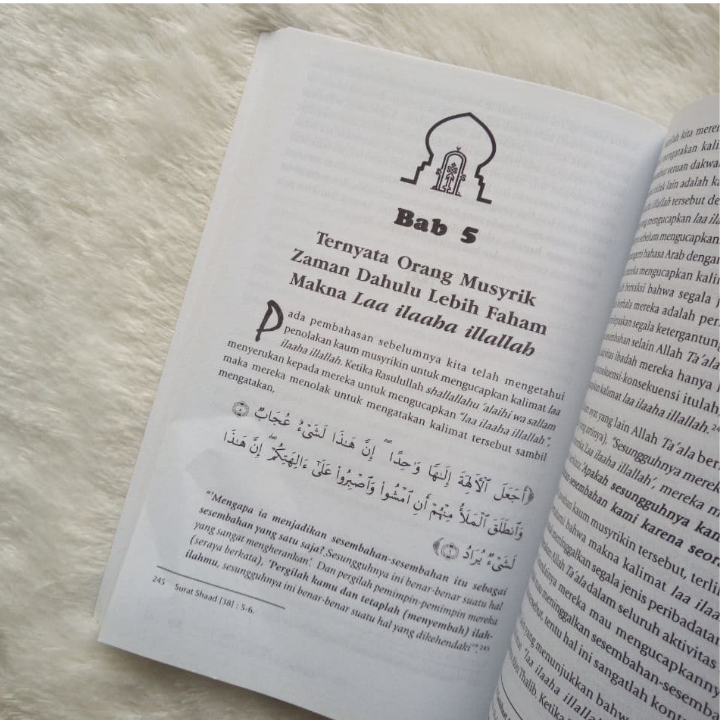 Bab 5
Ternyata Orang Musyrik
Zaman Dahulu Lebih Faham
Makna Laa ilaaha illallah
Pada pembahasan sebelumnya kita telah mengetahui
penolakan kaum musyrikin untuk mengucapkan kalimat laa
ilaaha illallah. Ketika Rasulullah shallallahu 'alaihi wa sallam
menyerukan kepada mereka untuk mengucapkan "laa ilaaha illallah",
maka mereka menolak untuk mengatakan kalimat tersebut sambil
mengatakan,
﴿أَجَعَلَ ٱلْأَلِهَةَ إِلَٰهًا وَٰحِدًا ۖ إِنَّ هَٰذَا لَشَىْءٌ عُجَابٌ ۝٥
وَٱنطَلَقَ ٱلْمَلَأُ مِنْهُمْ أَنِ ٱمْشُوا۟ وَٱصْبِرُوا۟ عَلَىٰٓ ءَالِهَتِكُمْ ۖ إِنَّ هَٰذَا
لَشَىْءٌ يُرَادُ ۝٦﴾
"'Mengapa ia menjadikan sesembahan-sesembahan itu sebagai
sesembahan yang satu saja? Sesungguhnya ini benar-benar suatu hal
yang sangat mengherankan'. Dan pergilah pemimpin-pemimpin mereka
(seraya berkata), 'Pergilah kamu dan tetaplah (menyembah) ilah-
ilahmu, sesungguhnya ini benar-benar suatu hal yang dikehendaki'".245
245 Surat Shaad [38] : 5-6.
kita
mengatakan kalim
seruan dakwa
lain adalah ka
illallah tersebut de
mengucapkan laa il
sebelum mengucapkan
bahasa Arab dengan
mengucapkan kalim
bahwa segala
mereka adalah per
segala ketergantung
selain Allah Ta'ala
ibadah mereka hanya
konsekuensi-konsekuensi itulah
kalimat laa ilaaha illallah.
yang lain Allah Ta'ala ber
'Sesungguhnya merek
laa ilaaha illallah', mereka m
'Apakah sesungguhnya kam
sesembahan kami karena seor
kaum musyrikin tersebut, terli
bahwa makna kalimat laa ilaa
meninggalkan segala jenis peribadatan
Allah Ta'ala dalam seluruh aktivitas
mereka mau mengucapkannya
meninggalkan sesembahan-sesemba
tentu hal ini sangatlah kon
yang menunjukkan bahwa
"laa ilaaha illallah
Thalib. Ketika